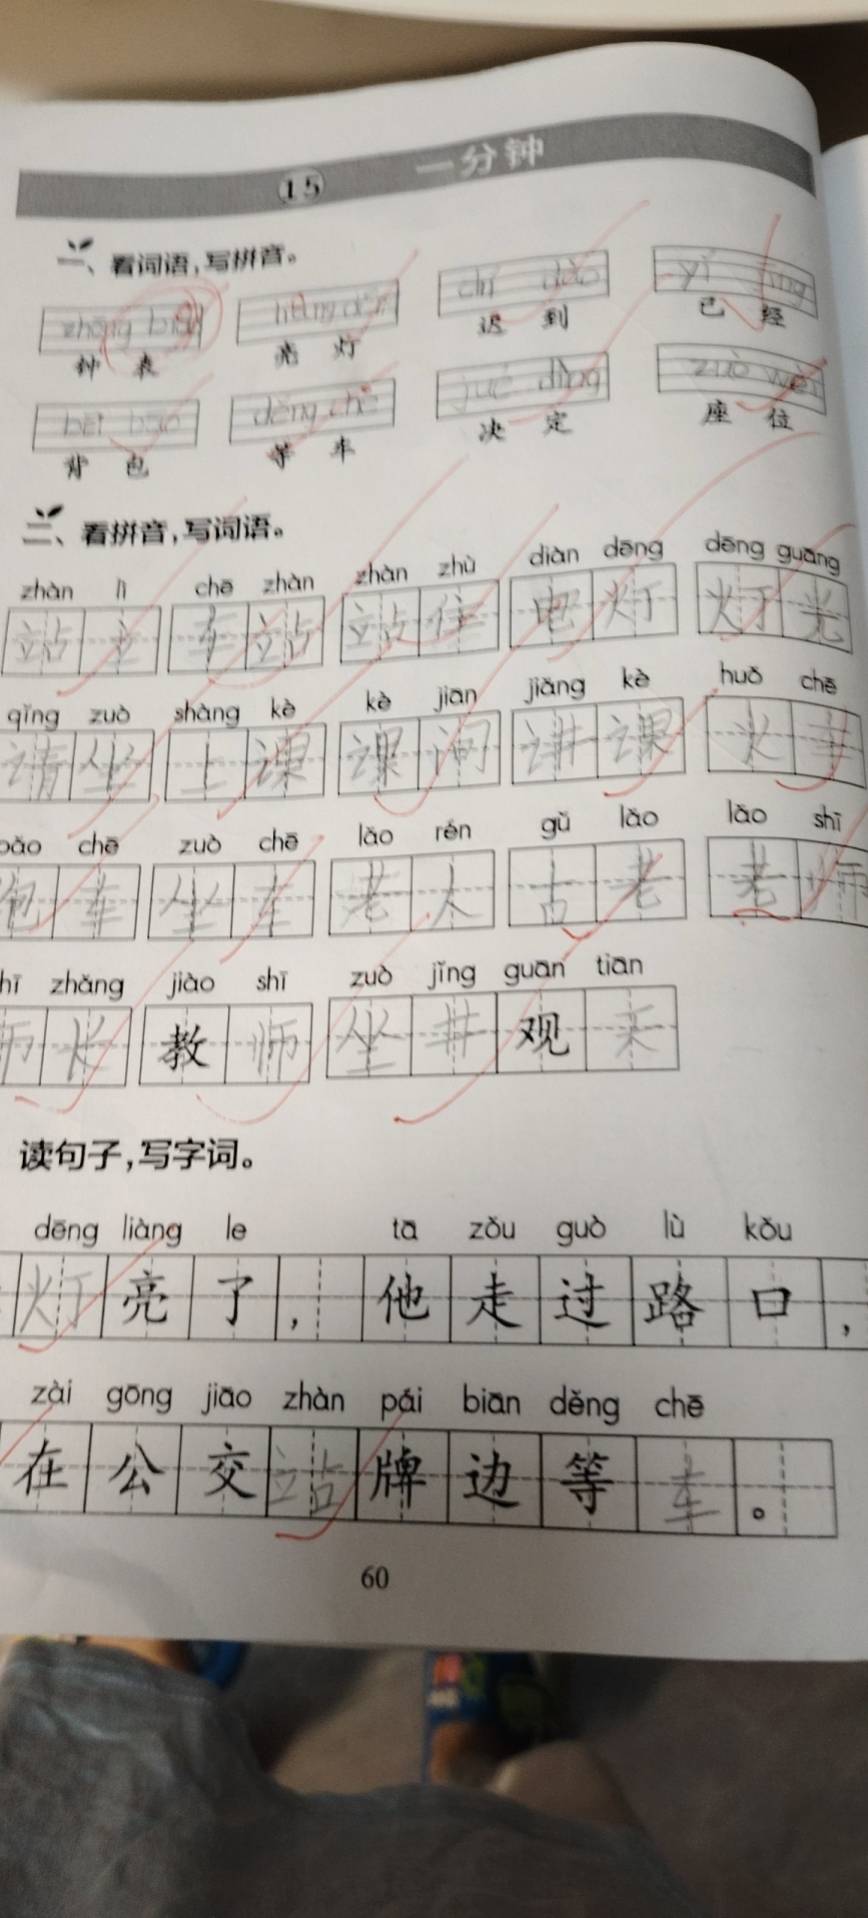 15 一分钟
一、看词语,写拼音。
chí dào yǐ jīng
钟 表 亮 灯 迟 到 已 经
bēi bāo děng chē jué dìng zuò wèi
背 包 等 车 决 定 座 位
二、看拼音,写词语。
zhàn lì chē zhàn zhàn zhù diàn dēng dēng guāng
站立 车站 站住 电灯 灯光
qǐng zuò shàng kè kè jiān jiǎng kè huǒ chē
请坐 上课 课间 讲课 火车
chē zuò chē lǎo rén gǔ lǎo lǎo shī
车 坐车 老人 古老 老师
zhǎng jiào shī zuò jǐng guān tiān
师长 教师 坐井观天
读句子,写字词。
dēng liàng le tā zǒu guò lù kǒu
灯亮了,他走过路口,
zài gōng jiāo zhàn pái biān děng chē
在公交站牌边等车。
60